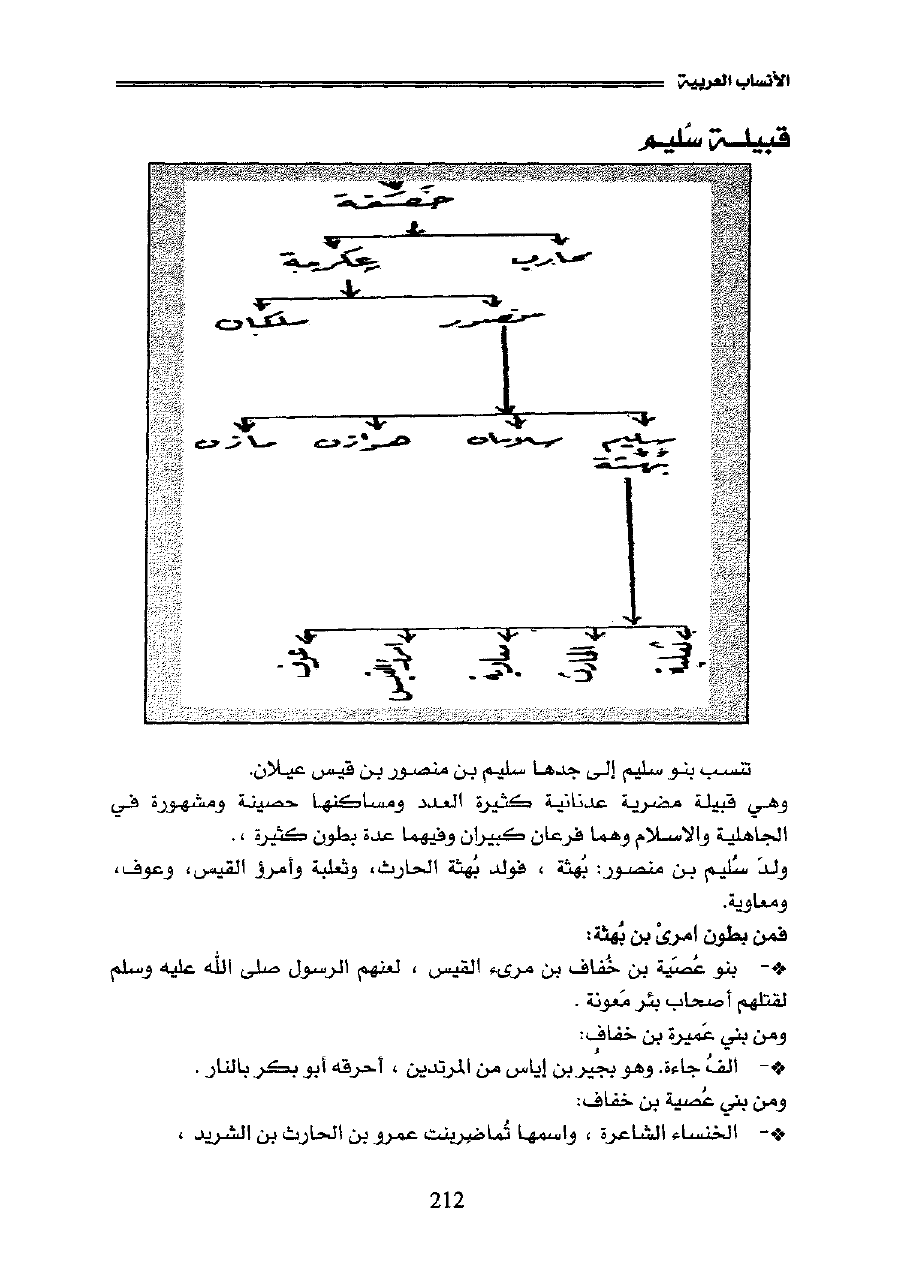 الأنساب العربية
قبيلة سُليم
خَصَفَة
عكرمة محارب
سلكان منصور
مازن هوازن سلامان سليم
بُهْثَة
عوف امرؤ القيس معاوية الحارث ثعلبة
تنسب بنو سليم إلى جدها سليم بن منصور بن قيس عيلان.
وهي قبيلة مضرية عدنانية كثيرة العدد ومساكنها حصينة ومشهورة في
الجاهلية والاسلام وهما فرعان كبيران وفيهما عدة بطون كثيرة ، .
ولدَ سُليم بن منصور: بُهثة ، فولد بُهثة الحارث، وثعلبة وأمرؤ القيس، وعوف،
ومعاوية.
فمن بطون امرئ بن بُهثة:
❖- بنو عُصيَة بن خُفاف بن مرىء القيس ، لعنهم الرسول صلى الله عليه وسلم
لقتلهم أصحاب بئر مَعونة .
ومن بني عَميرة بن خفاف:
❖- الفُ جاءة. وهو بجُير بن إياس من المرتدين ، أحرقه أبو بكر بالنار .
ومن بني عُصية بن خفاف:
❖- الخنساء الشاعرة ، واسمها تُماضربنت عمرو بن الحارث بن الشريد ،
212